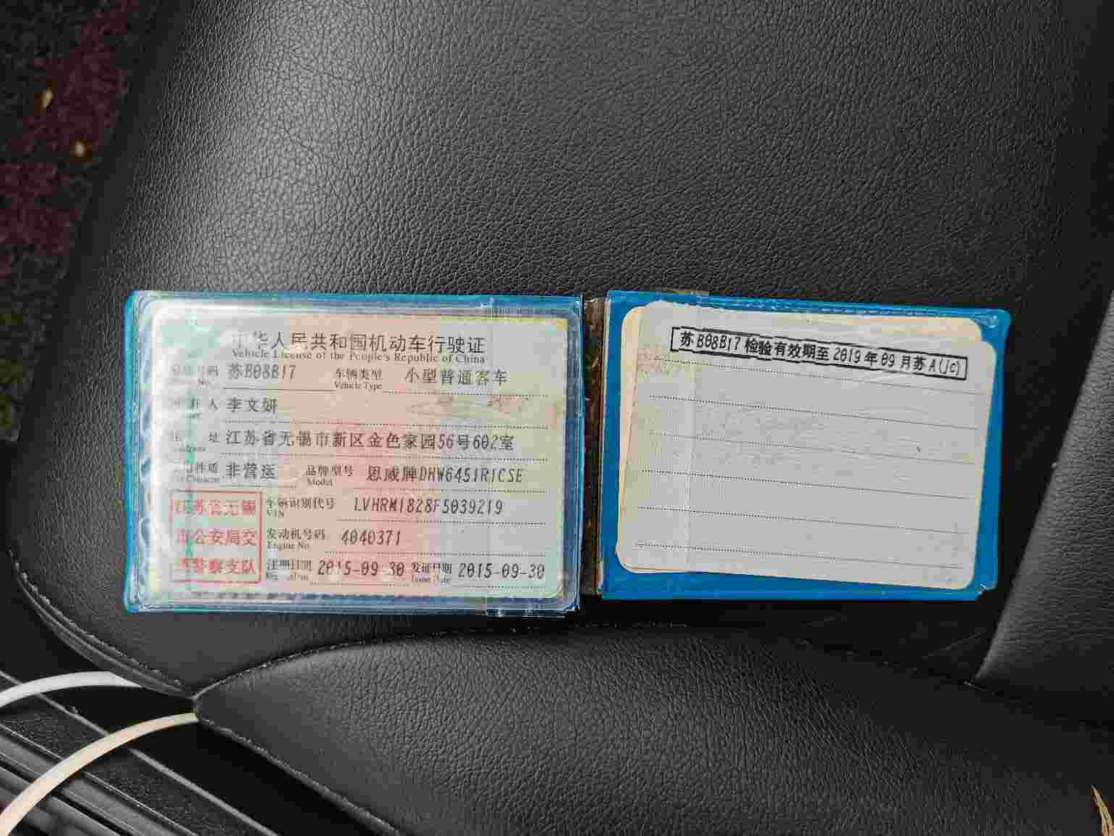 中华人民共和国机动车行驶证
Vehicle License of the People's Republic of China
号码 苏B08B17 车辆类型 小型普通客车
No. Vehicle Type
人 李文妍
址 江苏省无锡市新区金色家园56号602室
非营运 品牌型号 思威牌DHW6451R1CSE
Character Model
江苏省无锡 车辆识别代号 LVHRM1828F5039219
VIN
市公安局交 发动机号码 4040371
Engine No.
通警察支队 注册日期 2015-09-30 发证日期 2015-09-30
Issue Date
苏B08B17检验有效期至2019年09月苏A(JC)